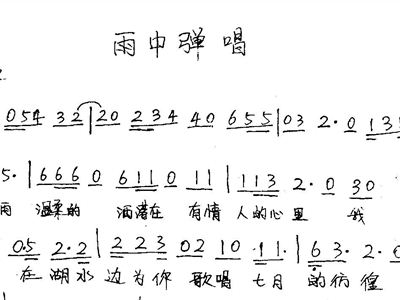 雨中弹唱
054 32 | 20 234 40 655 | 03 2· 0 13
5· | 666 0 6110 11 | 113 2· 0 30
雨 温柔的 洒落在 有情 人的心里 我
05 2·2 | 223 02 10 11· | 63· 2· 0
在湖水 边为你 歌唱 七月 的彷徨